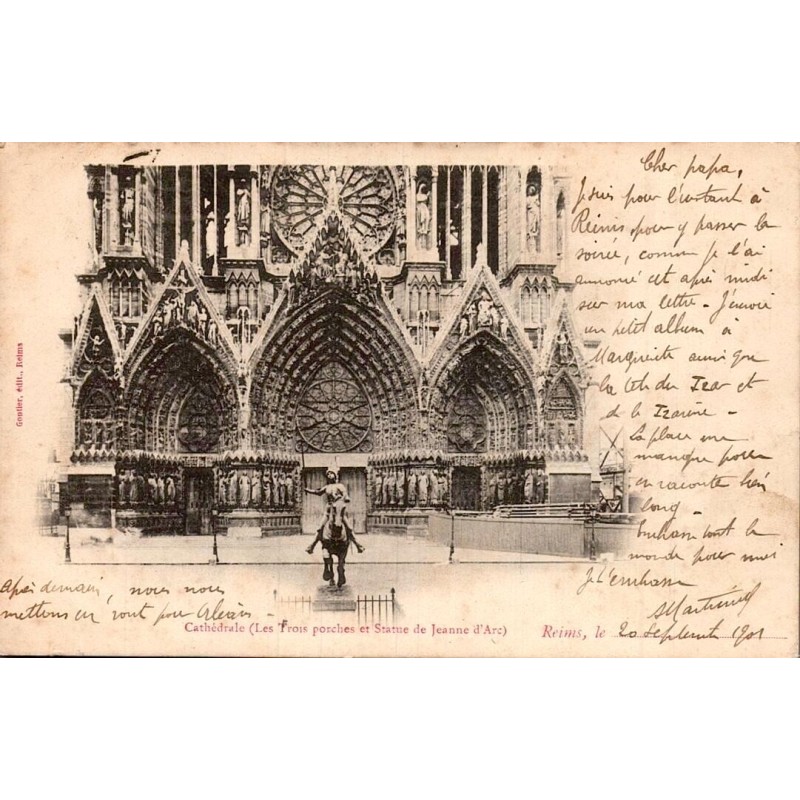 Cher papa,
Je suis pour l'instant à
Reims pour y passer la
soirée, comme je l'ai
annoncé cet après midi
sur ma lettre - J'envoie
un petit album à
Marguerite ainsi que
la du Tzar et
de la Tzarine -
La place me
manque pour
en raconte bien
long -
Embrasse tout le
monde pour moi
Je t'embrasse
Après demain, nous nous
mettons en rout pour Orléans -
Goutier, édit., Reims
Cathédrale (Les Trois porches et Statue de Jeanne d'Arc)
Reims, le 20 Septembre 1901